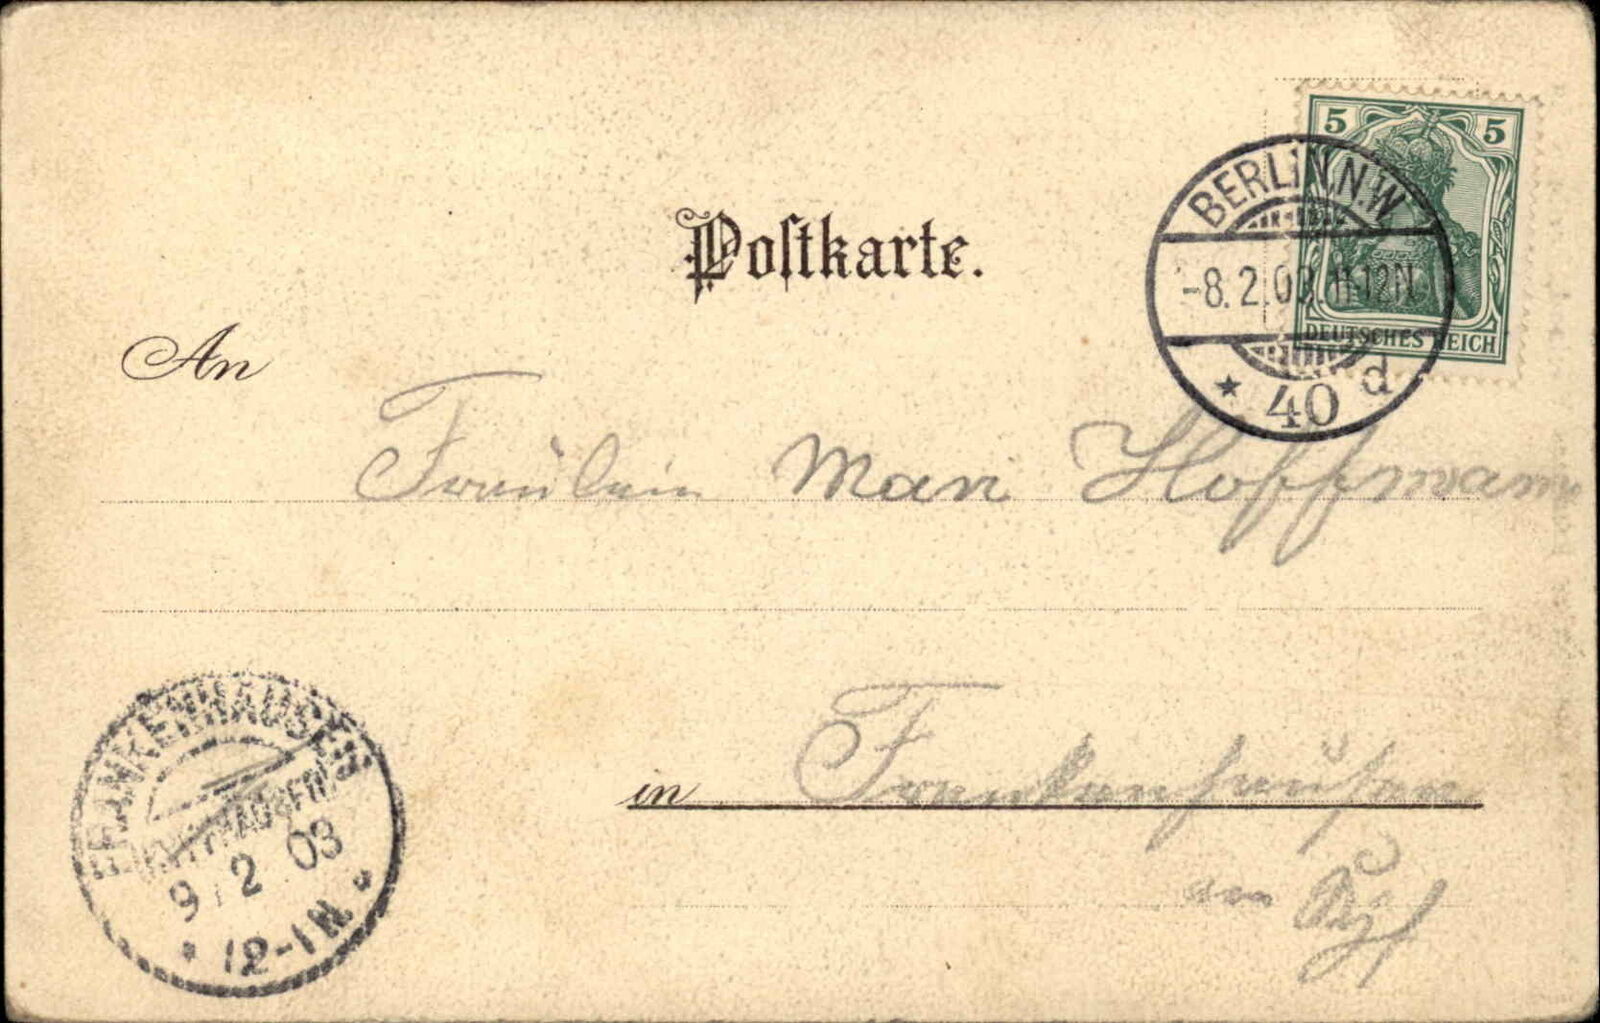 5 5
DEUTSCHES REICH
BERLIN, N.W.
-8.2.03. 11-12N.
* 40 d
Postkarte.
An
Fräulein Mary Hoffmann
in Frankenhausen
am Kyf
FRANKENHAUSEN
(KYFFHÄUSER)
9. 2. 03
* 12-1N. *